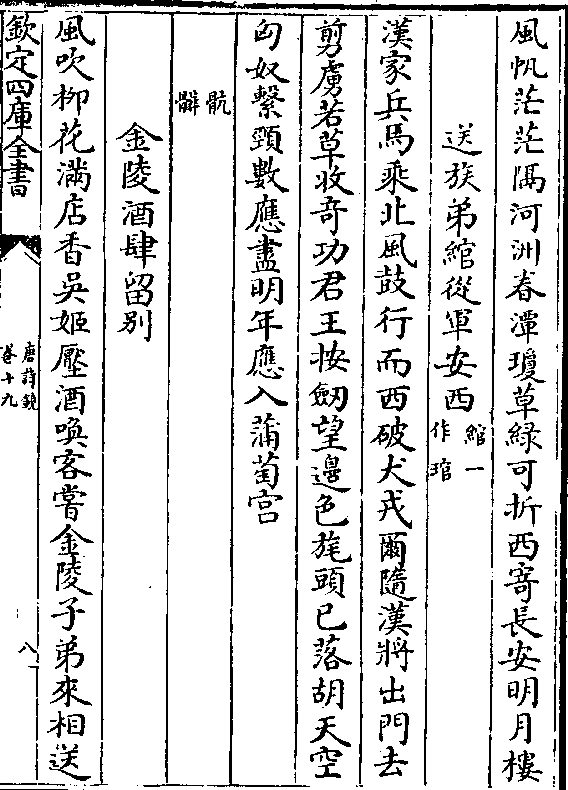 風帆茫茫隔河洲春潭瓊草緑可折西寄長安明月樓
送族弟綰從軍安西
綰一
作琯
漢家兵馬乘北風鼓行而西破犬戎爾隨漢將出門去
剪虜若草收奇功君王按劒望邊色旄頭已落胡天空
匈奴繫頸數應盡明年應入蒲萄宫
骯
髒
金陵酒肆留别
風吹柳花滿店香吳姬壓酒喚客嘗金陵子弟來相送
欽定四庫全書
唐詩鏡
卷十九
八